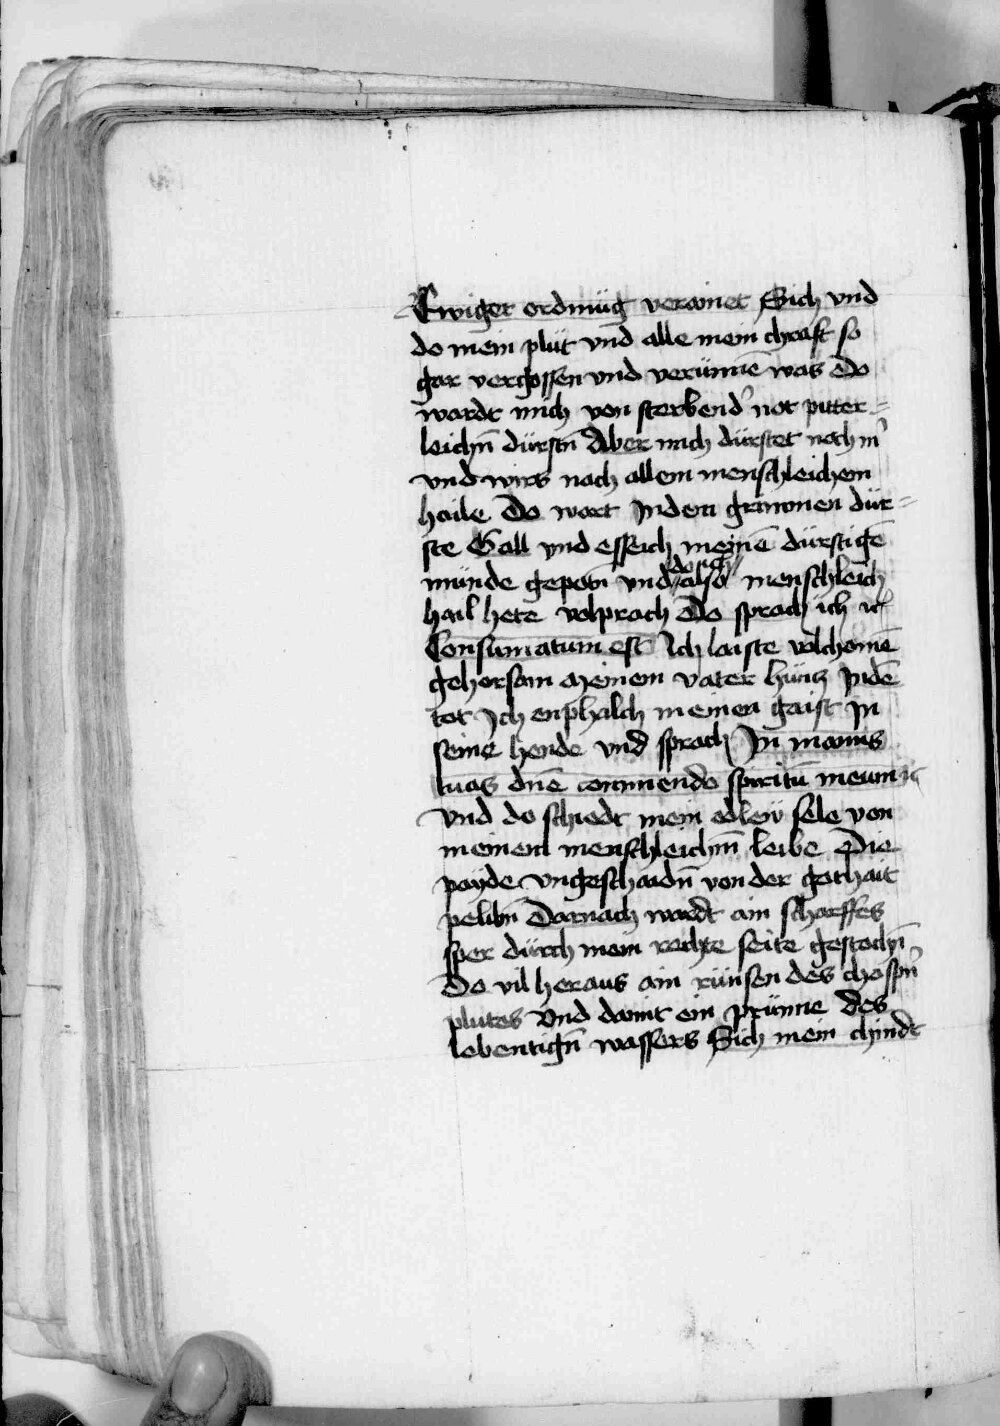 Ewiger ordnu̅g verainet Sich vnd
do mein plüt vnd alle mein chraft so
gar vergossen vnd verünne̅ was Do
wardt mich von sterbend' not pitter=
leich̅n dürst̅n Aber mich dürstet noch m'
vnd wirs nach allem menschleichem
haile Do wart Jn dem grimmen dür=
ste Gall vnd esseich meine̅ dürstige̅
münde gepot̅n vnd do ich also menschleich
hail hete volprach Do sprach ich
Consumatum est Ich laiste volchome̅
gehorsam meinem vater hüncz Jn de̅
tot Jch enphalch meinen gaist Jn
seine hende vnd sprach Jn manus
tuas dn̅e commendo spiritu̅ meum
Vnd do schiedt mein edlew sele von
meinem menschleich̅m leibe Die
payde vngeschaid̅n von der gothait
pelib̅n Darnach wardt ain scharffes
sper dürch mein rechte seite gestoch̅n
Do vil heraus ain rünsen des chosp̅n'
plutes Vnd damit ein prünne des
lebentig̅n wassers Sich mein chindt